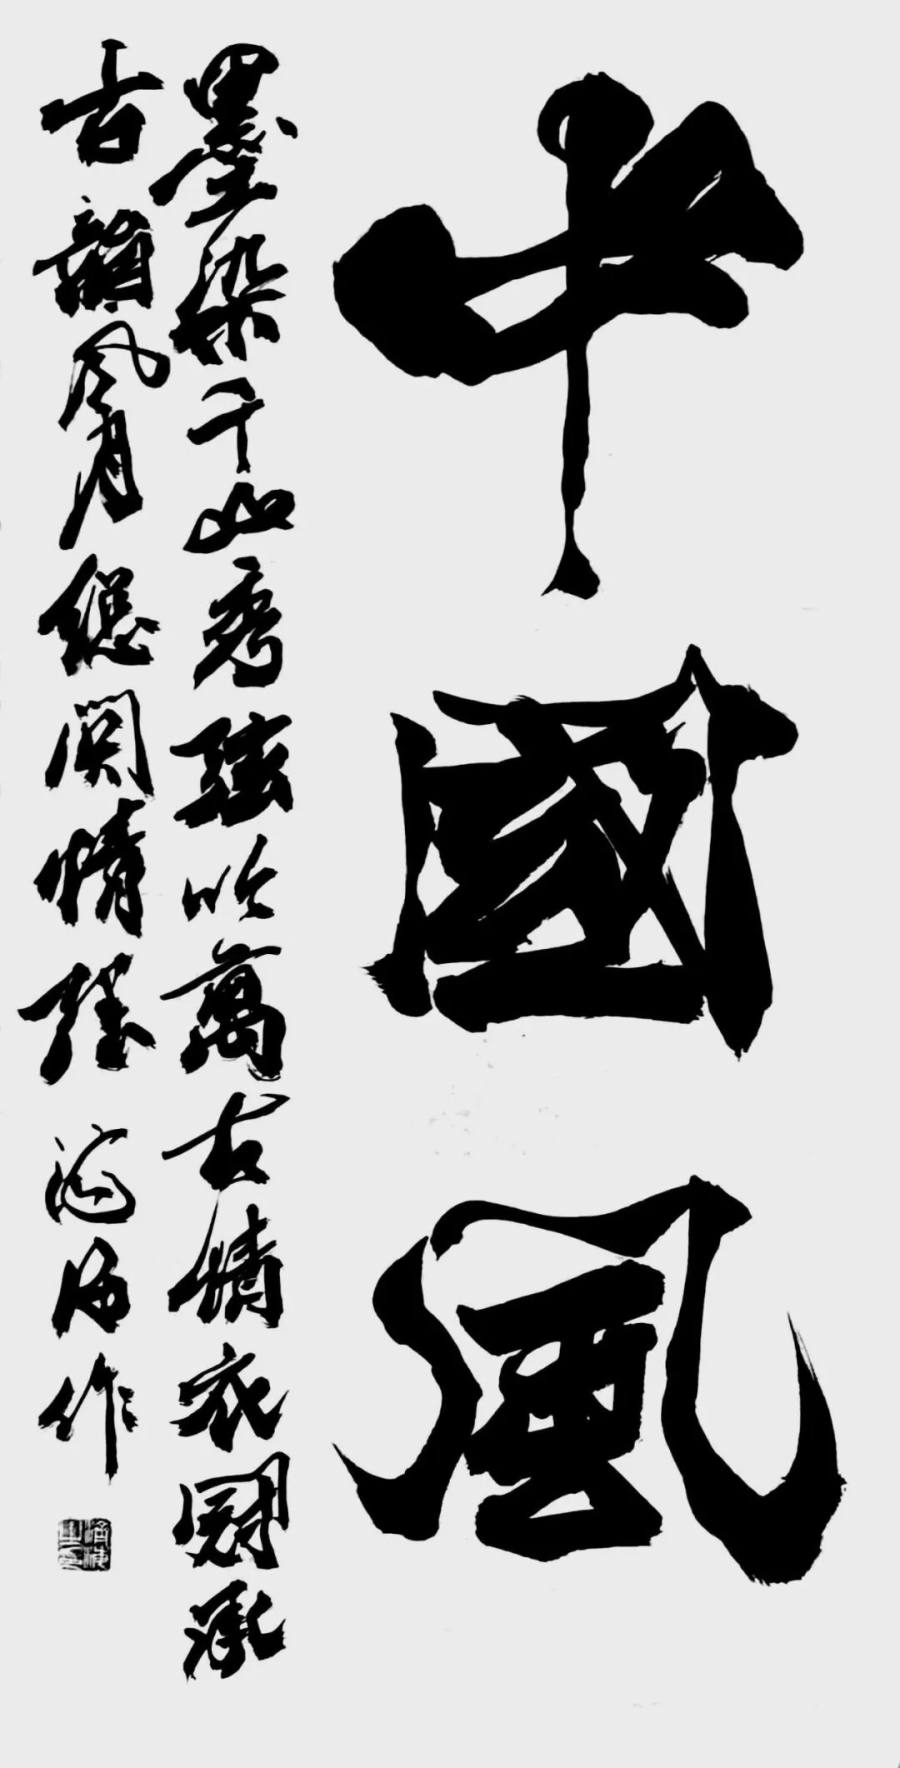 中國風
墨染千山秀弦吹萬古情衣冠承
古韻風月總関情
作